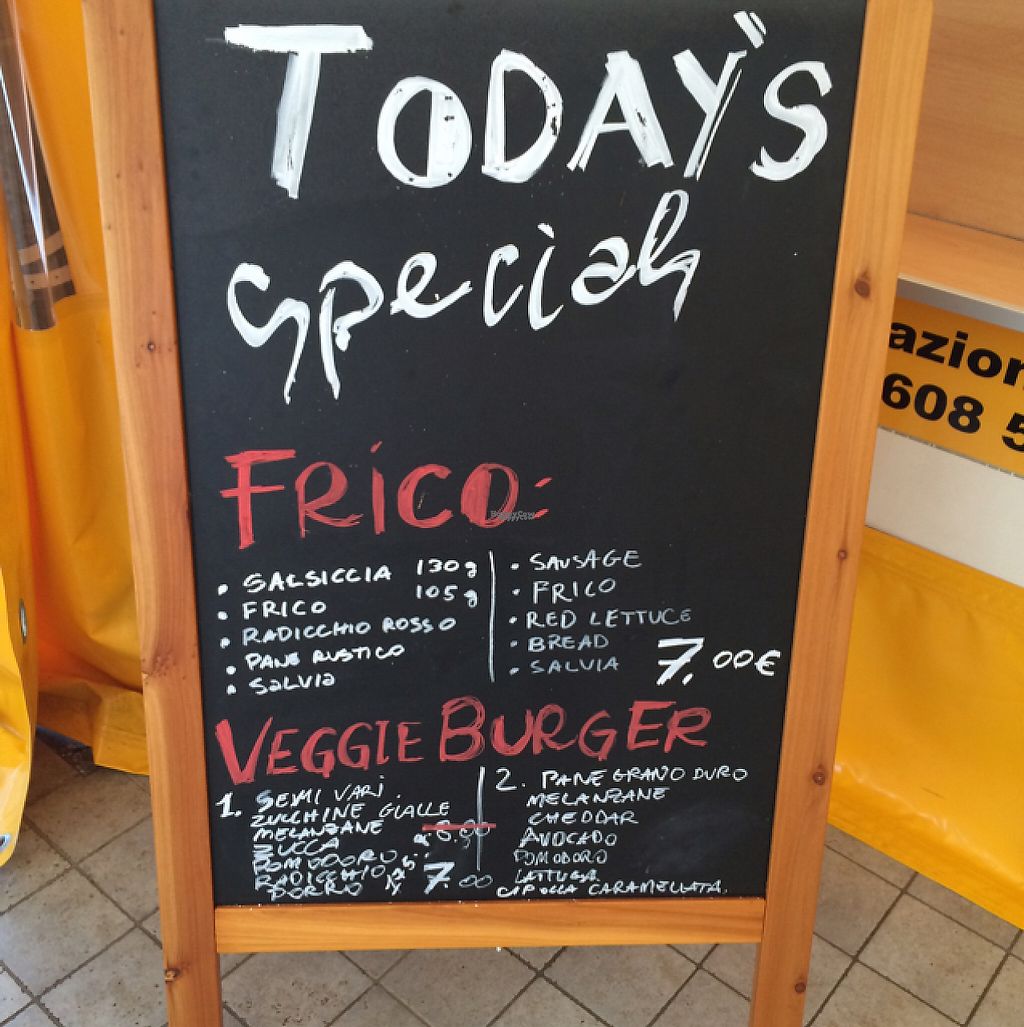 TODAY'S
specials
FRICO:
• SALSICCIA 130g
• FRICO 105g
• RADICCHIO ROSSO
• PANE RUSTICO
• SALVIA
• SAUSAGE
• FRICO
• RED LETTUCE
• BREAD
• SALVIA
7.00€
VEGGIE BURGER
1. SEMI VARI
ZUCCHINE GIALLE
MELANZANE
ZUCCA
POMODORO
RADICCHIO
PORRO
7.00
2. PANE GRANO DURO
MELANZANE
CHEDDAR
AVOCADO
POMODORO
LATTUGA
CIPOLLA CARAMELLATA.
azion
608 5